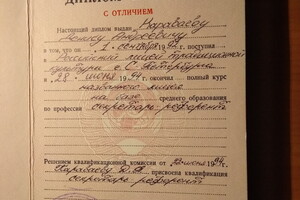 ДИПЛОМ
С ОТЛИЧИЕМ
Настоящий диплом выдан Караваеву
в том, что он 1 сентября 19 г. поступил
Российский лицей традиционной
культуры г. С.-Петербурга
28 июня 1994 окончил полный курс
названного лицея
на базе среднего образования
по профессии секретарь-референт
Решением квалификационной комиссии от июня 1994
Караваеву присвоена квалификация
секретарь-референт